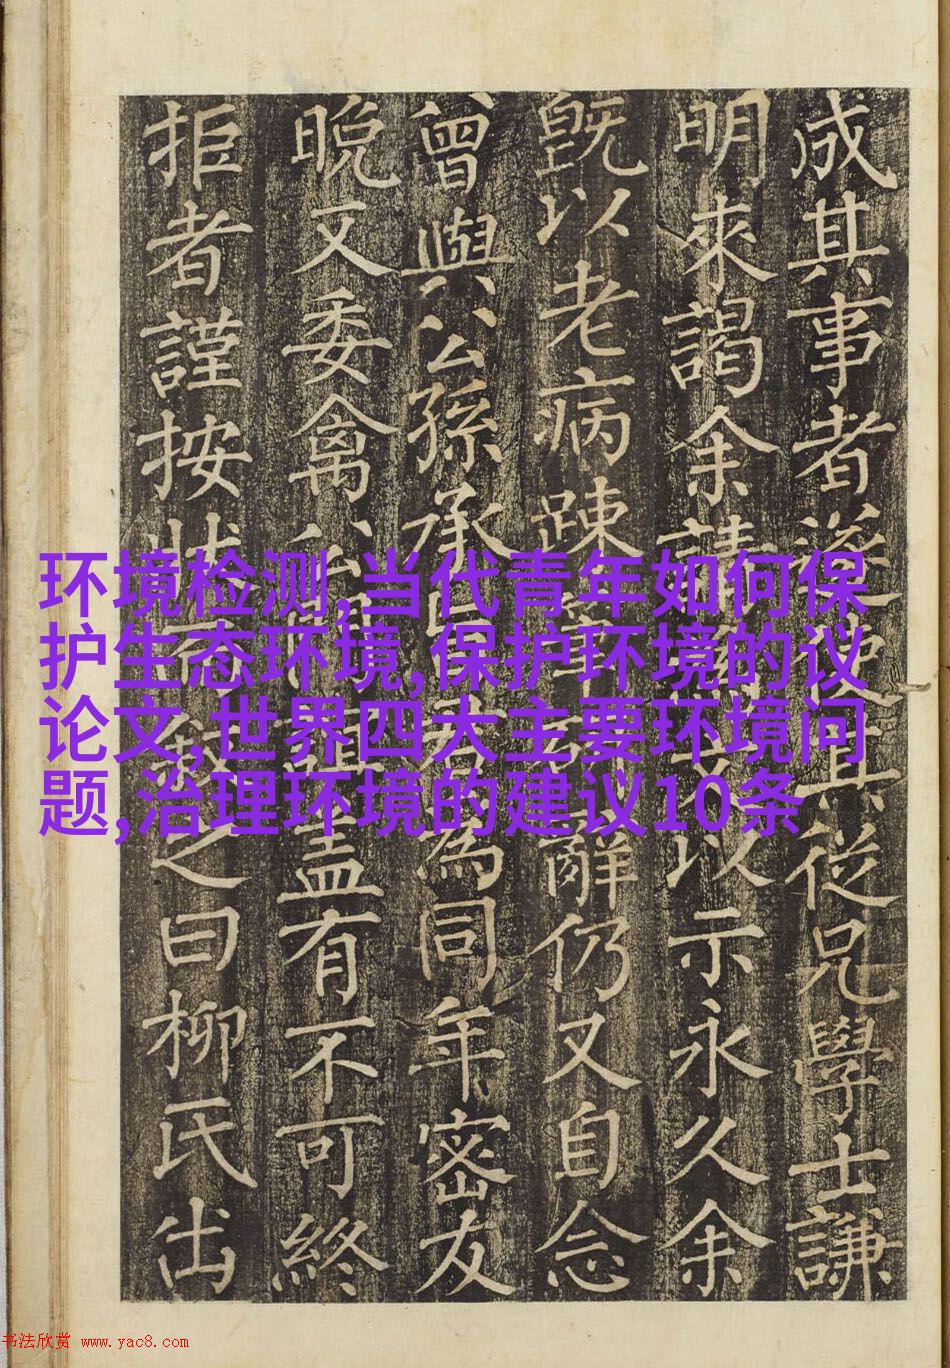 成其事者使其從兄學士謙
明來謁余請以示永久余
既以老病疎辭仍又自念
曾與公孫承為同年密友
晩又委禽公誼盖有不可終
拒者謹按狀之曰柳氏出
环境检测,当代青年如何保
护生态环境,保护环境的议
论文,世界四大主要环境问
题,治理环境的建议10条
书法欣赏 www.yac8.com